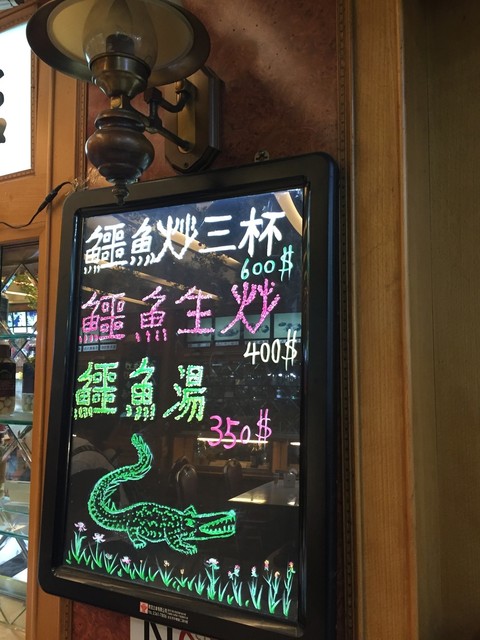 鱷魚炒三杯
600$
鱷魚生炒
400$
鱷魚湯
350$